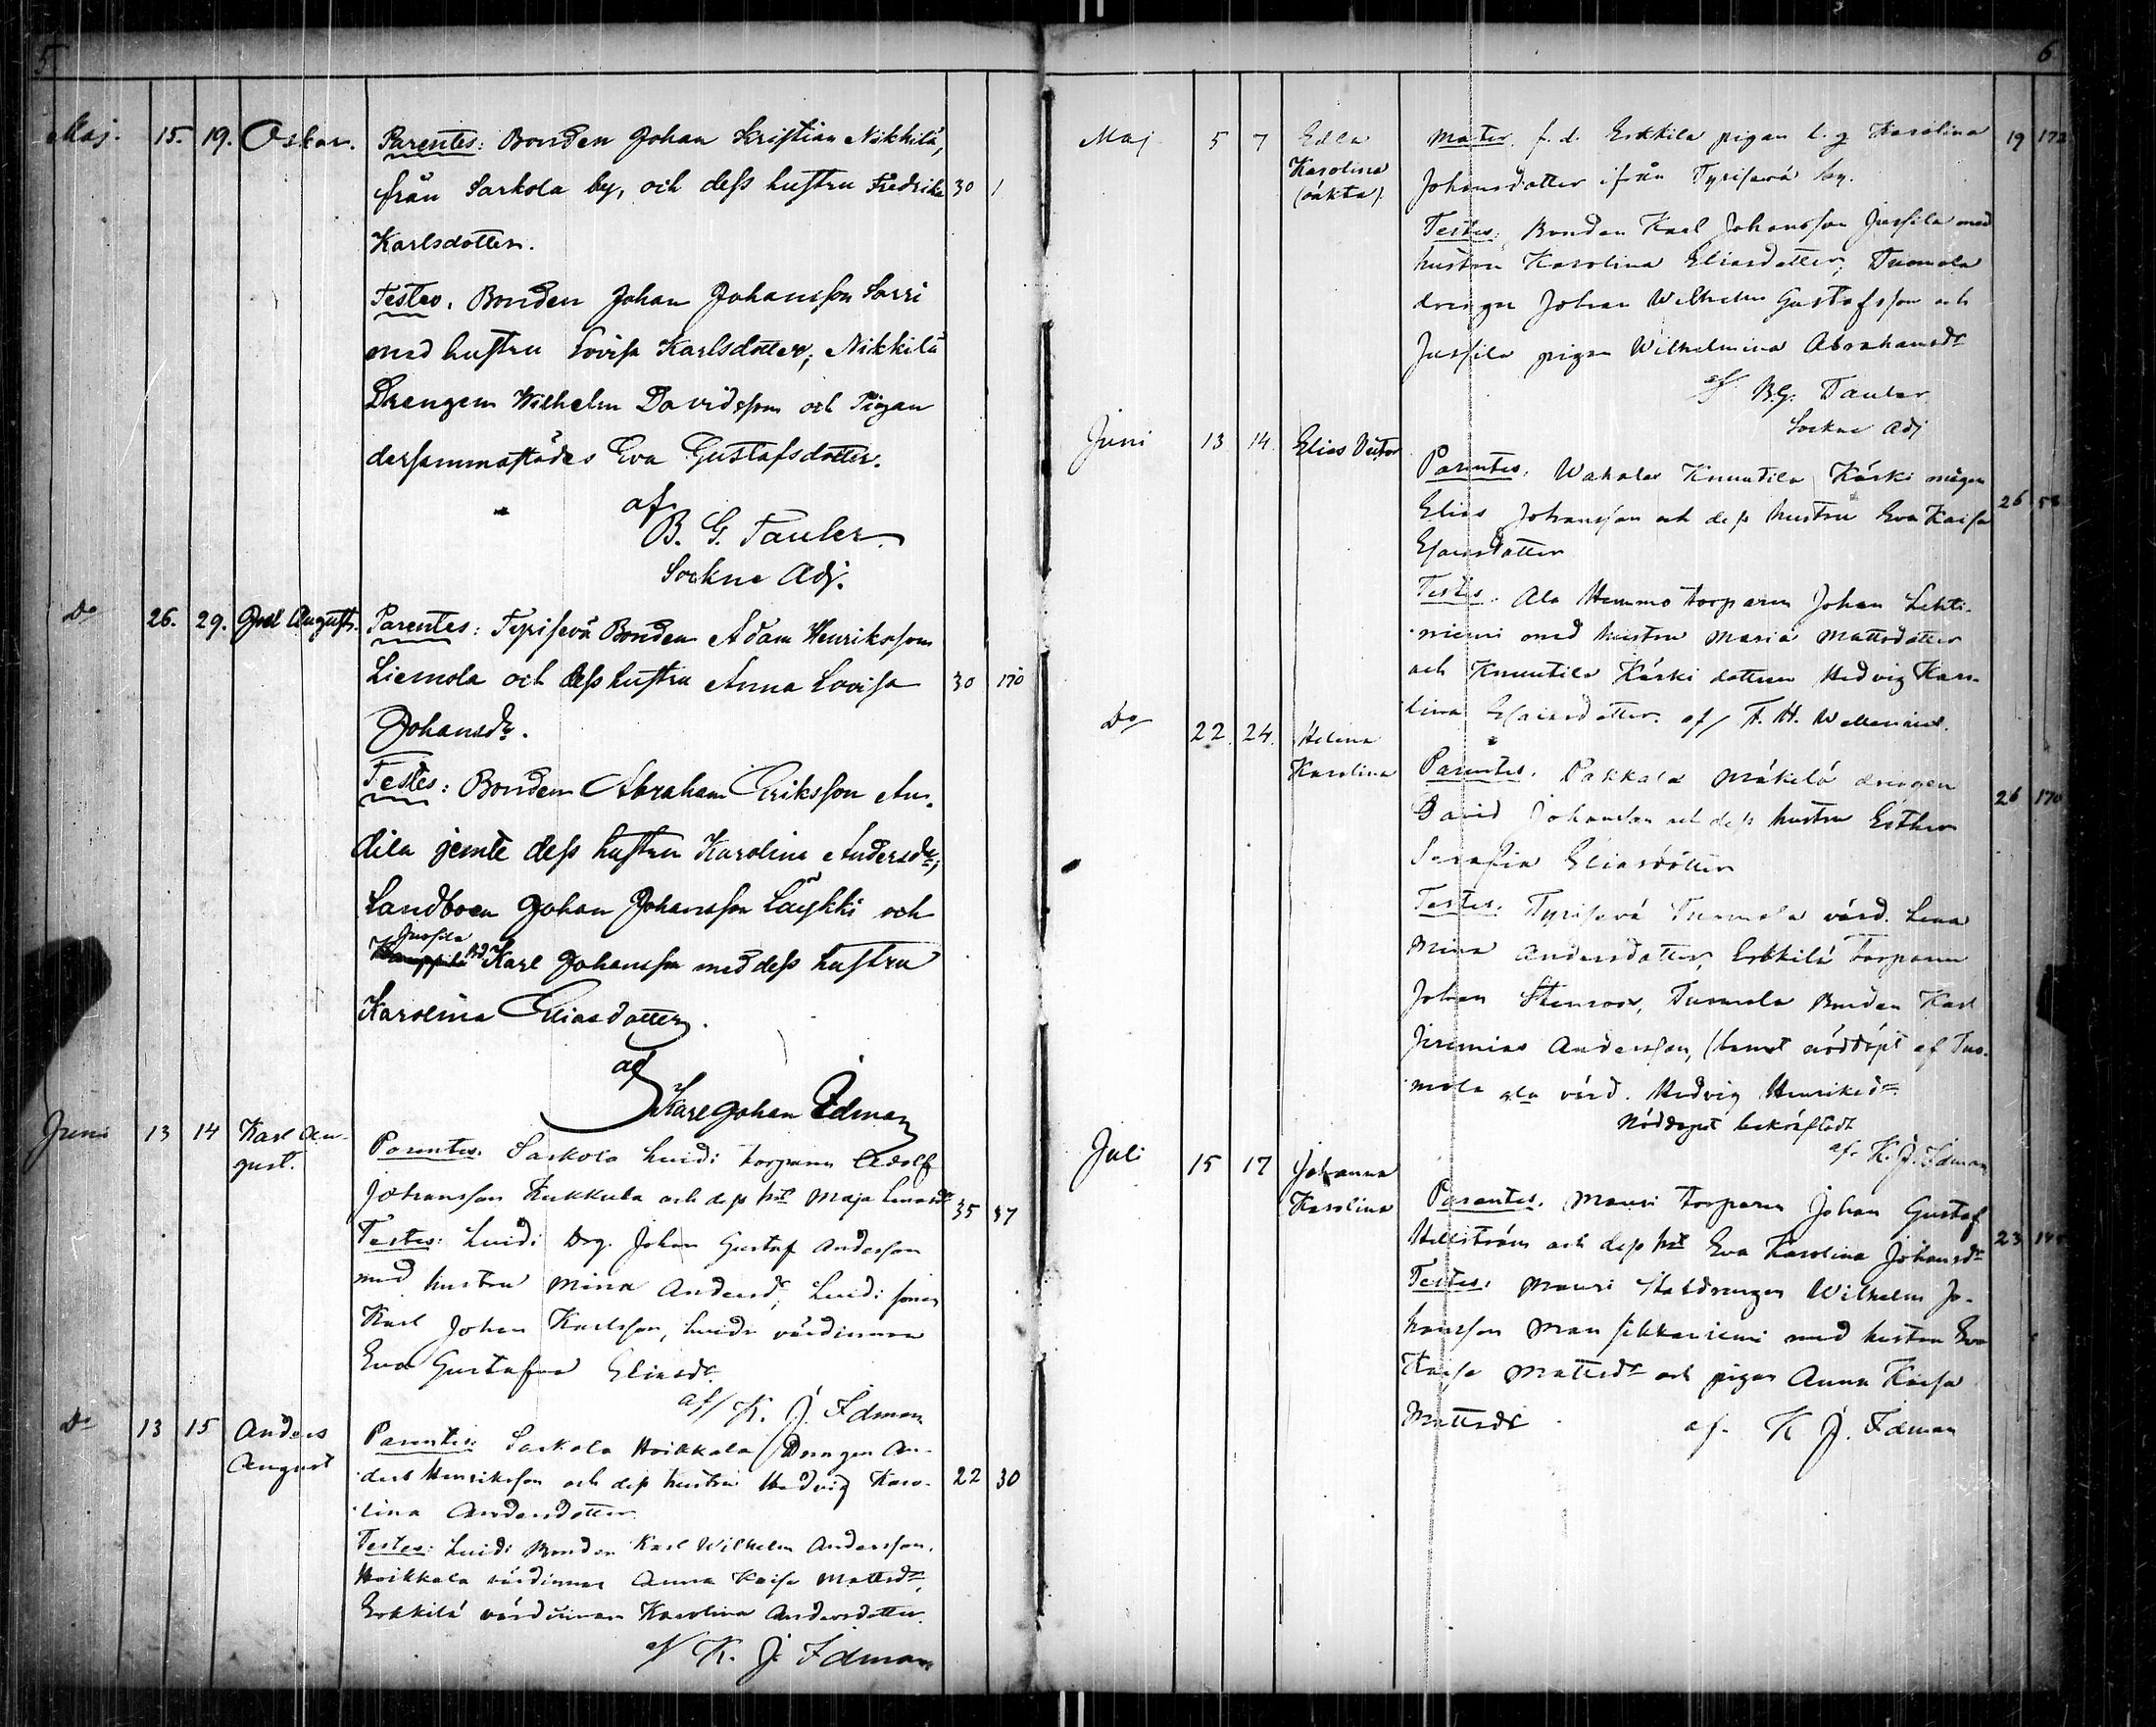 5
Maj. 15. 19. Oskar. Parentes: Bonden Johan Kristian Nikkilä,
från Sarkola by, och dess hustru Fredrika 30 1
Karlsdotter.
Testes. Bonden Johan Johansson Sorri
med hustru Lovisa Karlsdotter, Nikkilä
Drengen Wilhelm Davidsson och Pigan
dersammastädes Eva Gustafsdotter.
af
B. G. Tauler
Sockne Adj.
Do 26. 29. August. Parentes: Tyrisevä Bonden Adam Henriksson
Liemola och dess hustru Anna Lovisa 30 170
Johansdr.
Testes: Bonden Abraham Eriksson An-
dila jemte dess hustru Karolina Andersdr;
Landboen Johan Johansson Läykki och
Jussila
Karl Johansson med dess hustru
Karolina Eliasdotter.
af
Karl Johan Idman
Juni 13 14 Karl Au-
gust.
Parentes. Sarkola Luidi torparen Adolf
Johansson Kukkula och dess hst Maja 35 37
Testes: Luidi Drg. Johan Gustaf Andersson
med hustru Mina Andersdr, Luidi sonen
Karl Johan Karlsson, Luidi värdinnan
Eva Gustafva Eliasdr.
af/ K. J. Idman
Do 13 15 Anders
August
Parentes: Sarkola Hoikkala Drengen An-
ders Henriksson och dess hustru Hedvig Karo- 22 30
lina Andersdotter
Testes: Luidi Bonden Karl Wilhelm Andersson.
Hoikkala värdinnan Anna Kaisa Mattsdr,
Erkkilä värdinnan Karolina Andersdotter.
af K. J. Idman
6
Maj 5 7 Edla
Karolina
(oäkta).
Mater. f. d. Erkkila pigan l. g Karolina 19 172
Johansdotter ifrån Tyrisevä by.
Testes. Bonden Karl Johansson Jussila med
hustru Karolina Eliasdotter, Tuomola
drengen Johan Wilhelm Gustafsson och
Jussila pigan Wilhelmina Abrahamsdr
af B. G. Tauler
Sockne Adj
Juni 13 14 Elias Victor
Parentes. Wahalax Knuutila Käski mågen
Elias Johansson och dess hustru Eva Kaisa 26 58
Esaiasdotter
Testes. Ala Hemmo torparen Johan Lehti-
niemi med hustru Maria Mattsdotter
och Knuutila Käski dottren Hedvig Karo-
lina Esaiasdotter. af/ F. H. Wallenius.
Do 22. 24. Helena
Karolina
Parentes. Pakkala Mäkelä drengen 26 170
David Johansson och dess hustru Esther
Serafia Eliasdotter
Testes. Tyrisevä Tuomola värd. Lena
Mina Andersdotter, Erkkilä torparen
Johan Stenroos, Tuomola Bonden Karl
Jeremias Andersson, barnet nöddöpt af Tuo-
mola ala värd. Hedvig Henriksdr
Nöddopet bekräftadt
af. K. J. Idman
Juli 15 17 Johanna
Karolina
Parentes. Mauri torparen Johan Gustaf
Hellström och dess hst Eva Karolina Johansdr 23
Testes. Mauri Statdrengen Wilhelm Jo-
hansson Mansikkaniemi med hustru Eva
Kaisa Mattsdr och pigan Anna Kaisa
Mattsdr af. K J. Idman